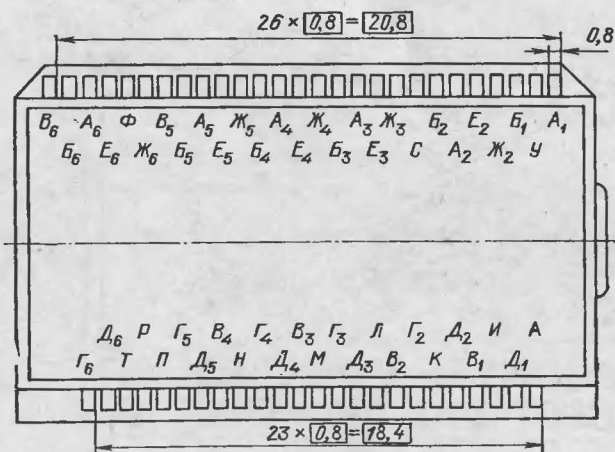 26 × 0,8 = 20,8
0,8
В6 А6 Ф В5 А5 Ж5 А4 Ж4 А3 Ж3 Б2 Е2 Б1 А1
Б6 Е6 Ж6 Б5 Е5 Б4 Е4 Б3 Е3 С А2 Ж2 У
Д6 Р Г5 В4 Г4 В3 Г3 Л Г2 Д2 И А
Г6 Т П Д5 Н Д4 М Д3 В2 К В1 Д1
23 × 0,8 = 18,4